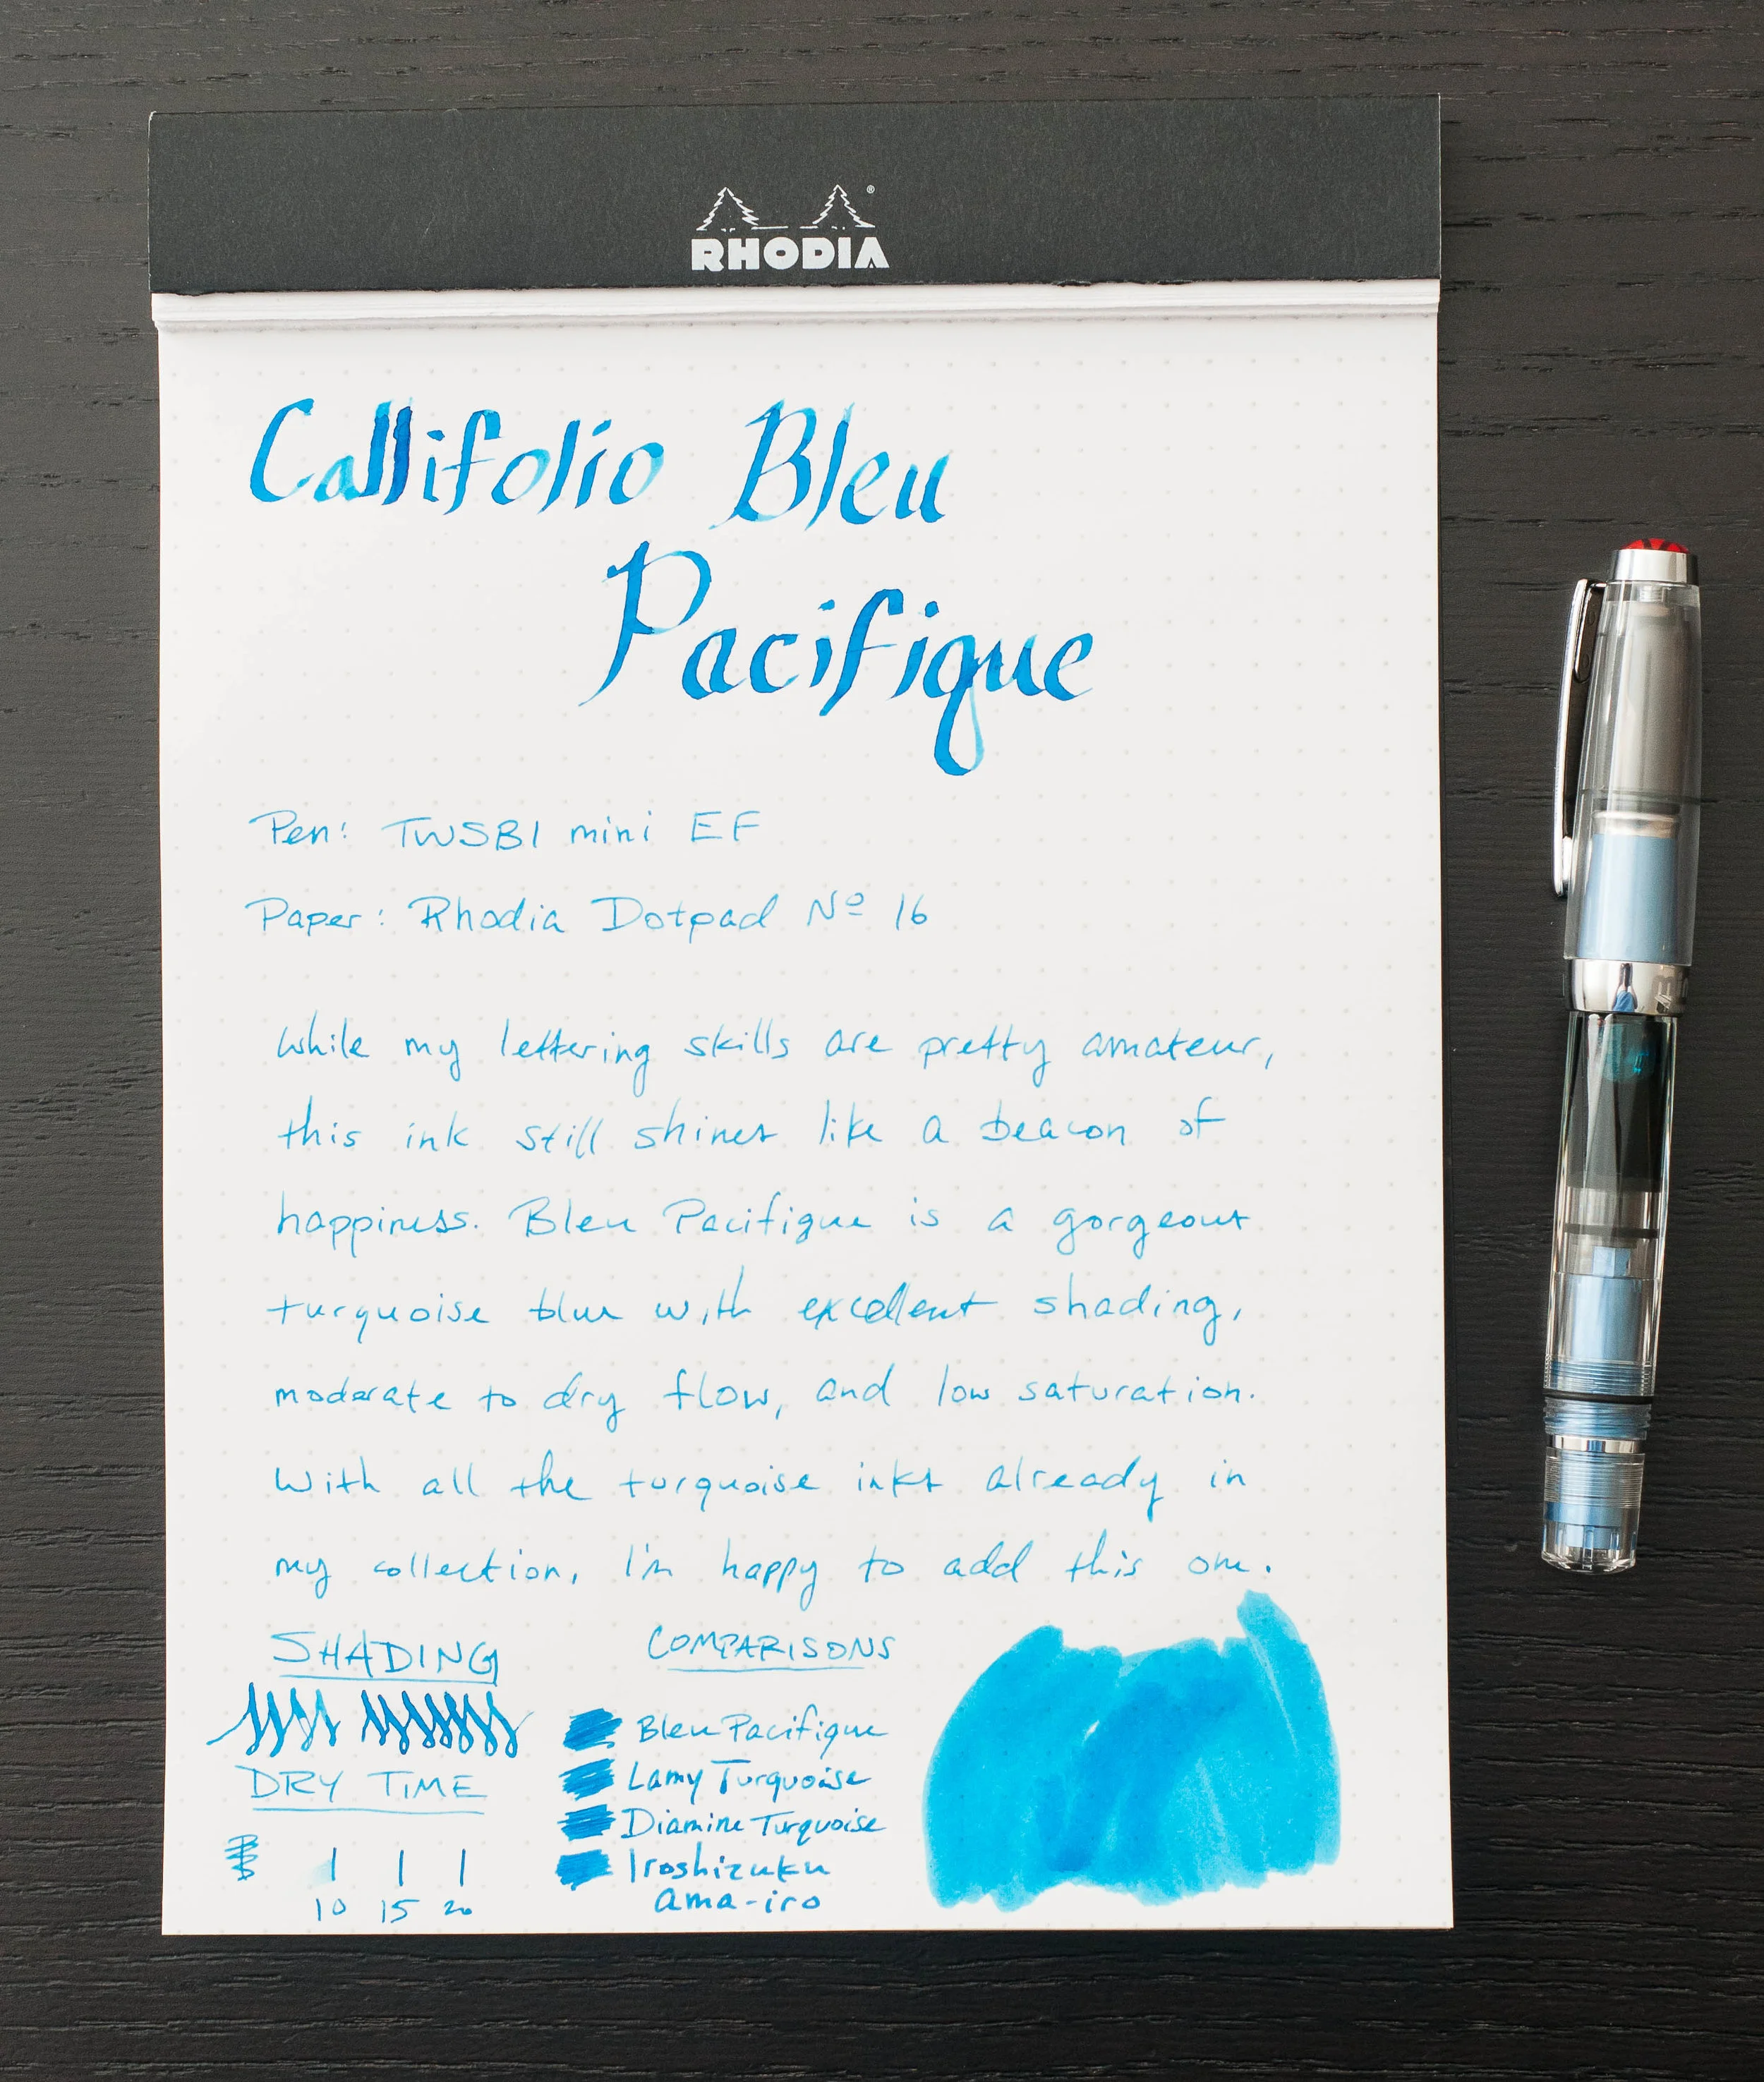 RHODIA
Callifolio Bleu
Pacifique
Pen: TWSBI mini EF
Paper: Rhodia Dotpad Nº 16
While my lettering skills are pretty amateur,
this ink still shines like a beacon of
happiness. Bleu Pacifique is a gorgeous
turquoise blue with excellent shading,
moderate to dry flow, and low saturation.
With all the turquoise inks already in
my collection, I'm happy to add this one.
SHADING
DRY TIME
10 15 20
COMPARISONS
Bleu Pacifique
Lamy Turquoise
Diamine Turquoise
Iroshizuku
ama-iro